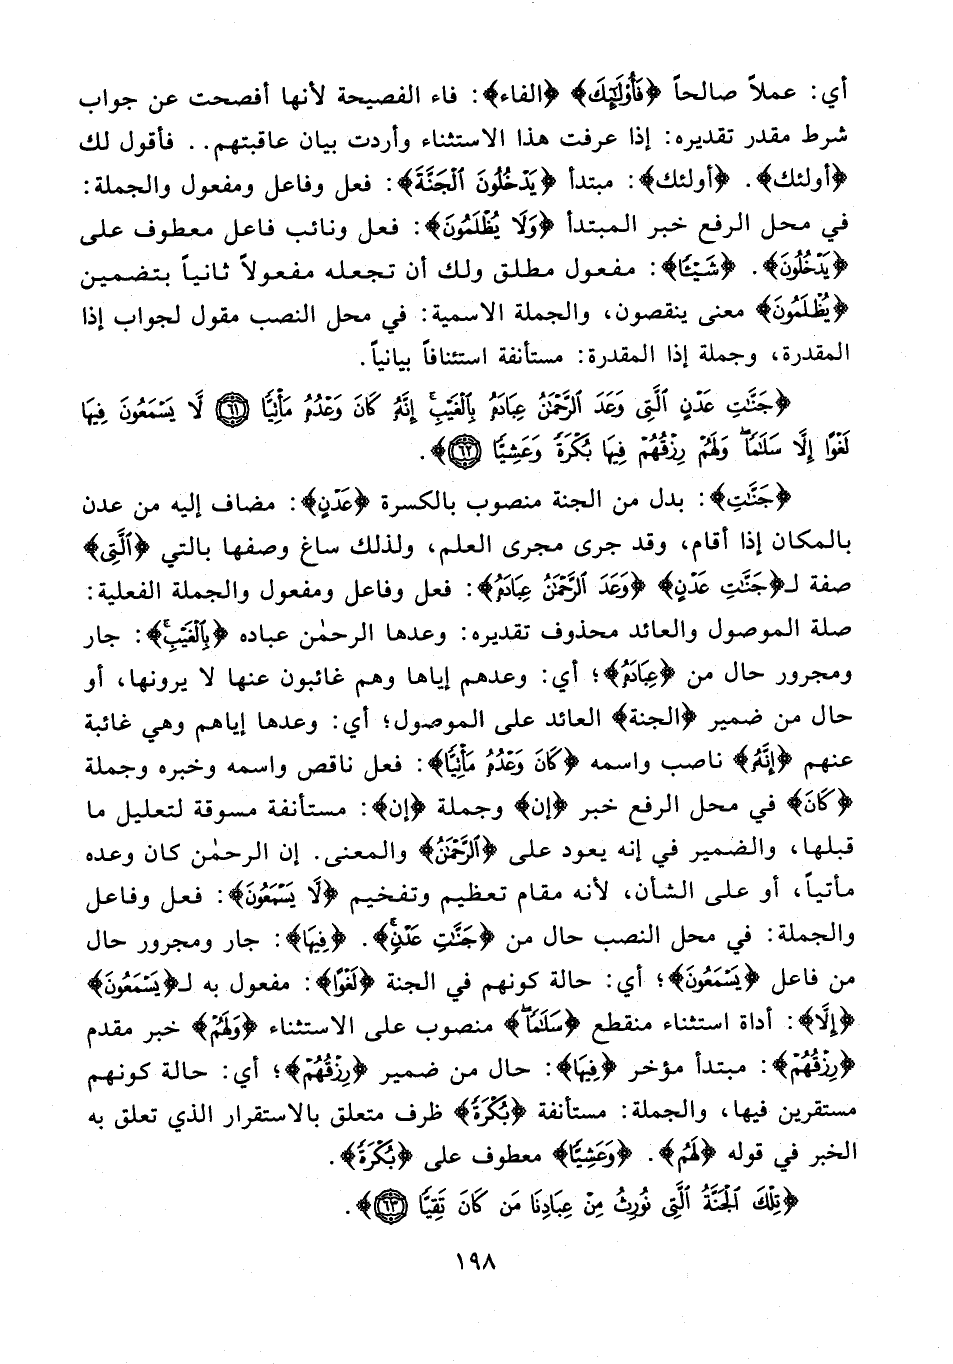 أي: عملاً صالحاً ﴿فَأُولَٰٓئِكَ﴾ ﴿الفاء﴾: فاء الفصيحة لأنها أفصحت عن جواب
شرط مقدر تقديره: إذا عرفت هذا الاستثناء وأردت بيان عاقبتهم.. فأقول لك
﴿أولئك﴾. ﴿أولئك﴾: مبتدأ ﴿يَدْخُلُونَ ٱلْجَنَّةَ﴾: فعل وفاعل ومفعول والجملة:
في محل الرفع خبر المبتدأ ﴿وَلَا يُظْلَمُونَ﴾: فعل ونائب فاعل معطوف على
﴿يَدْخُلُونَ﴾. ﴿شَيْـًٔا﴾: مفعول مطلق ولك أن تجعله مفعولاً ثانياً بتضمين
﴿يُظْلَمُونَ﴾ معنى ينقصون، والجملة الاسمية: في محل النصب مقول لجواب إذا
المقدرة، وجملة إذا المقدرة: مستأنفة استئنافاً بيانياً.
﴿جَنَّٰتِ عَدْنٍ ٱلَّتِى وَعَدَ ٱلرَّحْمَٰنُ عِبَادَهُۥ بِٱلْغَيْبِ ۚ إِنَّهُۥ كَانَ وَعْدُهُۥ مَأْتِيًّا ٦١ لَّا يَسْمَعُونَ فِيهَا
لَغْوًا إِلَّا سَلَٰمًا ۖ وَلَهُمْ رِزْقُهُمْ فِيهَا بُكْرَةً وَعَشِيًّا ٦٢﴾.
﴿جَنَّٰتِ﴾: بدل من الجنة منصوب بالكسرة ﴿عَدْنٍ﴾: مضاف إليه من عدن
بالمكان إذا أقام، وقد جرى مجرى العلم، ولذلك ساغ وصفها بالتي ﴿ٱلَّتِى﴾
صفة لـ﴿جَنَّٰتِ عَدْنٍ﴾ ﴿وَعَدَ ٱلرَّحْمَٰنُ عِبَادَهُۥ﴾: فعل وفاعل ومفعول والجملة الفعلية:
صلة الموصول والعائد محذوف تقديره: وعدها الرحمٰن عباده ﴿بِٱلْغَيْبِ ۚ﴾: جار
ومجرور حال من ﴿عِبَادَهُۥ﴾؛ أي: وعدهم إياها وهم غائبون عنها لا يرونها، أو
حال من ضمير ﴿الجنة﴾ العائد على الموصول؛ أي: وعدها إياهم وهي غائبة
عنهم ﴿إِنَّهُۥ﴾ ناصب واسمه ﴿كَانَ وَعْدُهُۥ مَأْتِيًّا﴾: فعل ناقص واسمه وخبره وجملة
﴿كَانَ﴾ في محل الرفع خبر ﴿إن﴾ وجملة ﴿إن﴾: مستأنفة مسوقة لتعليل ما
قبلها، والضمير في إنه يعود على ﴿ٱلرَّحْمَٰنُ﴾ والمعنى. إن الرحمٰن كان وعده
مأتياً، أو على الشأن، لأنه مقام تعظيم وتفخيم ﴿لَّا يَسْمَعُونَ﴾: فعل وفاعل
والجملة: في محل النصب حال من ﴿جَنَّٰتِ عَدْنٍ ۚ﴾. ﴿فِيهَا﴾: جار ومجرور حال
من فاعل ﴿يَسْمَعُونَ﴾؛ أي: حالة كونهم في الجنة ﴿لَغْوًا﴾: مفعول به لـ﴿يَسْمَعُونَ﴾
﴿إِلَّا﴾: أداة استثناء منقطع ﴿سَلَٰمًا ۖ﴾ منصوب على الاستثناء ﴿وَلَهُمْ﴾ خبر مقدم
﴿رِزْقُهُمْ﴾: مبتدأ مؤخر ﴿فِيهَا﴾: حال من ضمير ﴿رِزْقُهُمْ﴾؛ أي: حالة كونهم
مستقرين فيها، والجملة: مستأنفة ﴿بُكْرَةً﴾ ظرف متعلق بالاستقرار الذي تعلق به
الخبر في قوله ﴿لَهُمْ﴾. ﴿وَعَشِيًّا﴾ معطوف على ﴿بُكْرَةً﴾.
﴿تِلْكَ ٱلْجَنَّةُ ٱلَّتِى نُورِثُ مِنْ عِبَادِنَا مَن كَانَ تَقِيًّا ٦٣﴾.
١٩٨